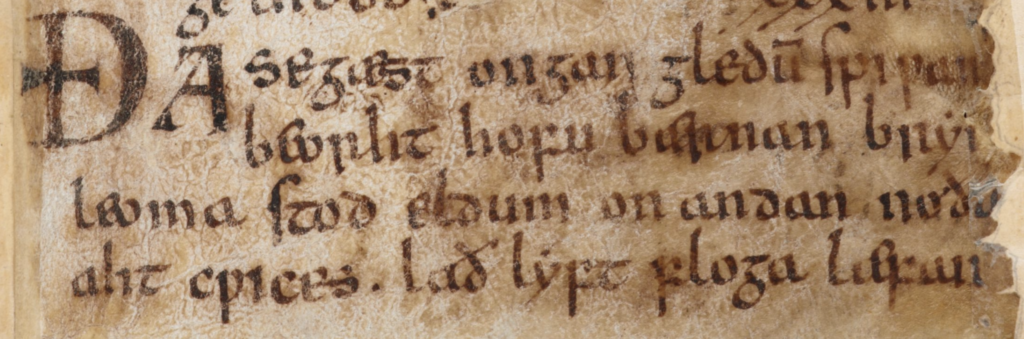 ÐA se gæst ongan gledū spiƿan
beorht hofu bærnan
leoma stod eldum on andan no
aht cƿices. lað lyft floga læfan